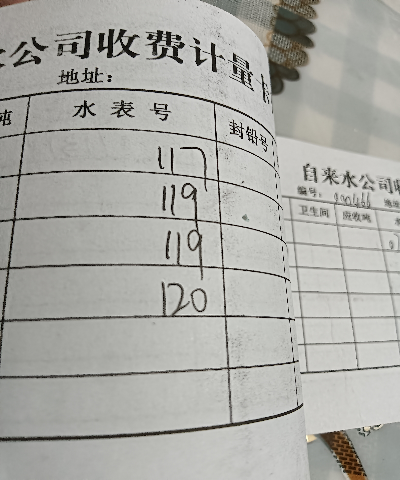 水公司收费计量卡
地址：
吨 水表号 封铅号
117
119
119
120
自来水公司收
编号：
卫生间 应收吨